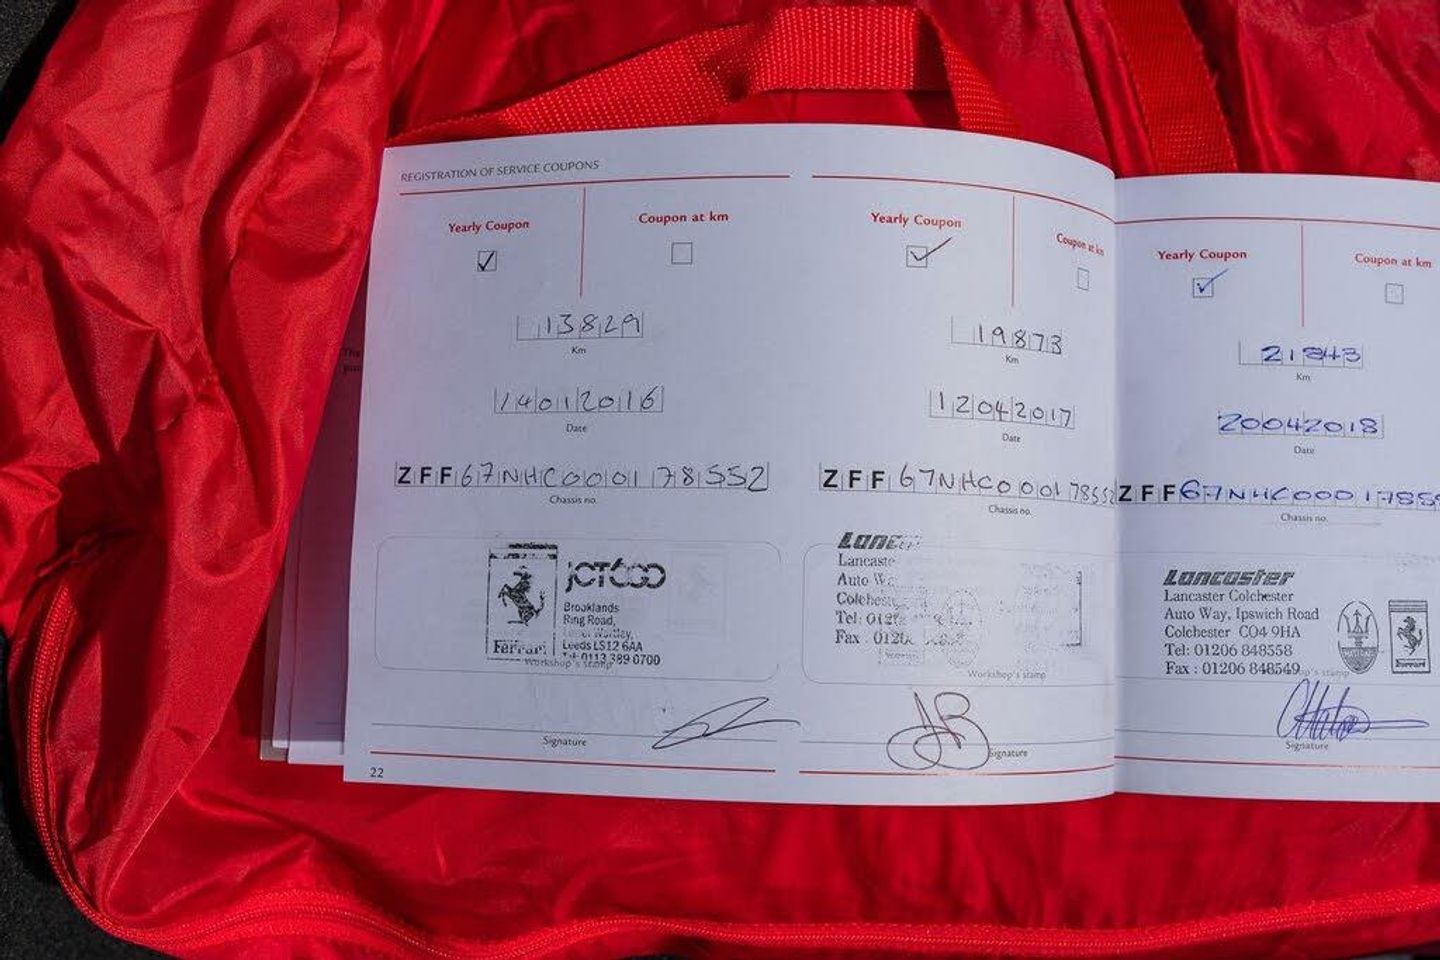 REGISTRATION OF SERVICE COUPONS
Yearly Coupon
Coupon at km
13829
Km
14012016
Date
ZFF67NHC000178552
Chassis no.
JCT600
Brooklands
Ring Road,
Leeds LS12 6AA
Tel: 0113 389 0700
Ferrari
Workshop's stamp
Signature
22
Yearly Coupon
Coupon at km
19873
Km
12042017
Date
ZFF67NHC000178552
Chassis no.
Auto
Tel:
Fax :
Workshop's stamp
Signature
Yearly Coupon
Coupon at km
21843
Km
20042018
Date
ZFF67NHC0001785
Chassis no.
Lancaster
Lancaster Colchester
Auto Way, Ipswich Road
Colchester CO4 9HA
Tel: 01206 848558
Fax : 01206 848549
MASERATI
Ferrari
Signature